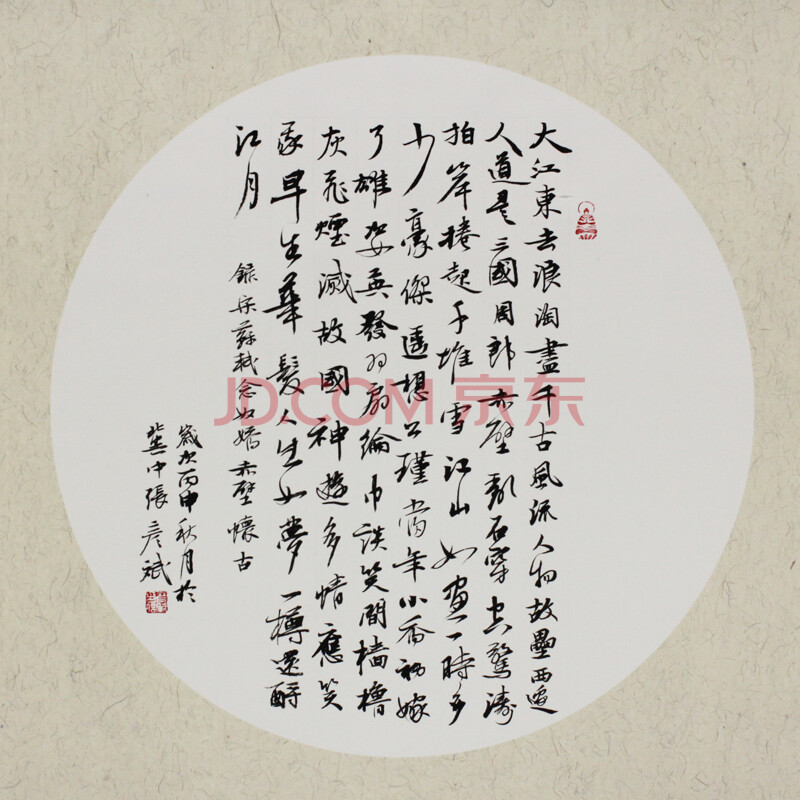 大江東去浪淘盡千古風流人物故壘西邊
人道是三國周郎赤壁亂石穿空驚濤
拍岸捲起千堆雪江山如畫一時多
少豪傑遙想公瑾當年小喬初嫁
了雄姿英發羽扇綸巾談笑間檣櫓
灰飛煙滅故國神遊多情應笑
我早生華髮人生如夢一樽還酹
江月
錄宋蘇軾念奴嬌赤壁懷古
歲次丙申秋月於
冀中張彥斌
JD.COM 京东